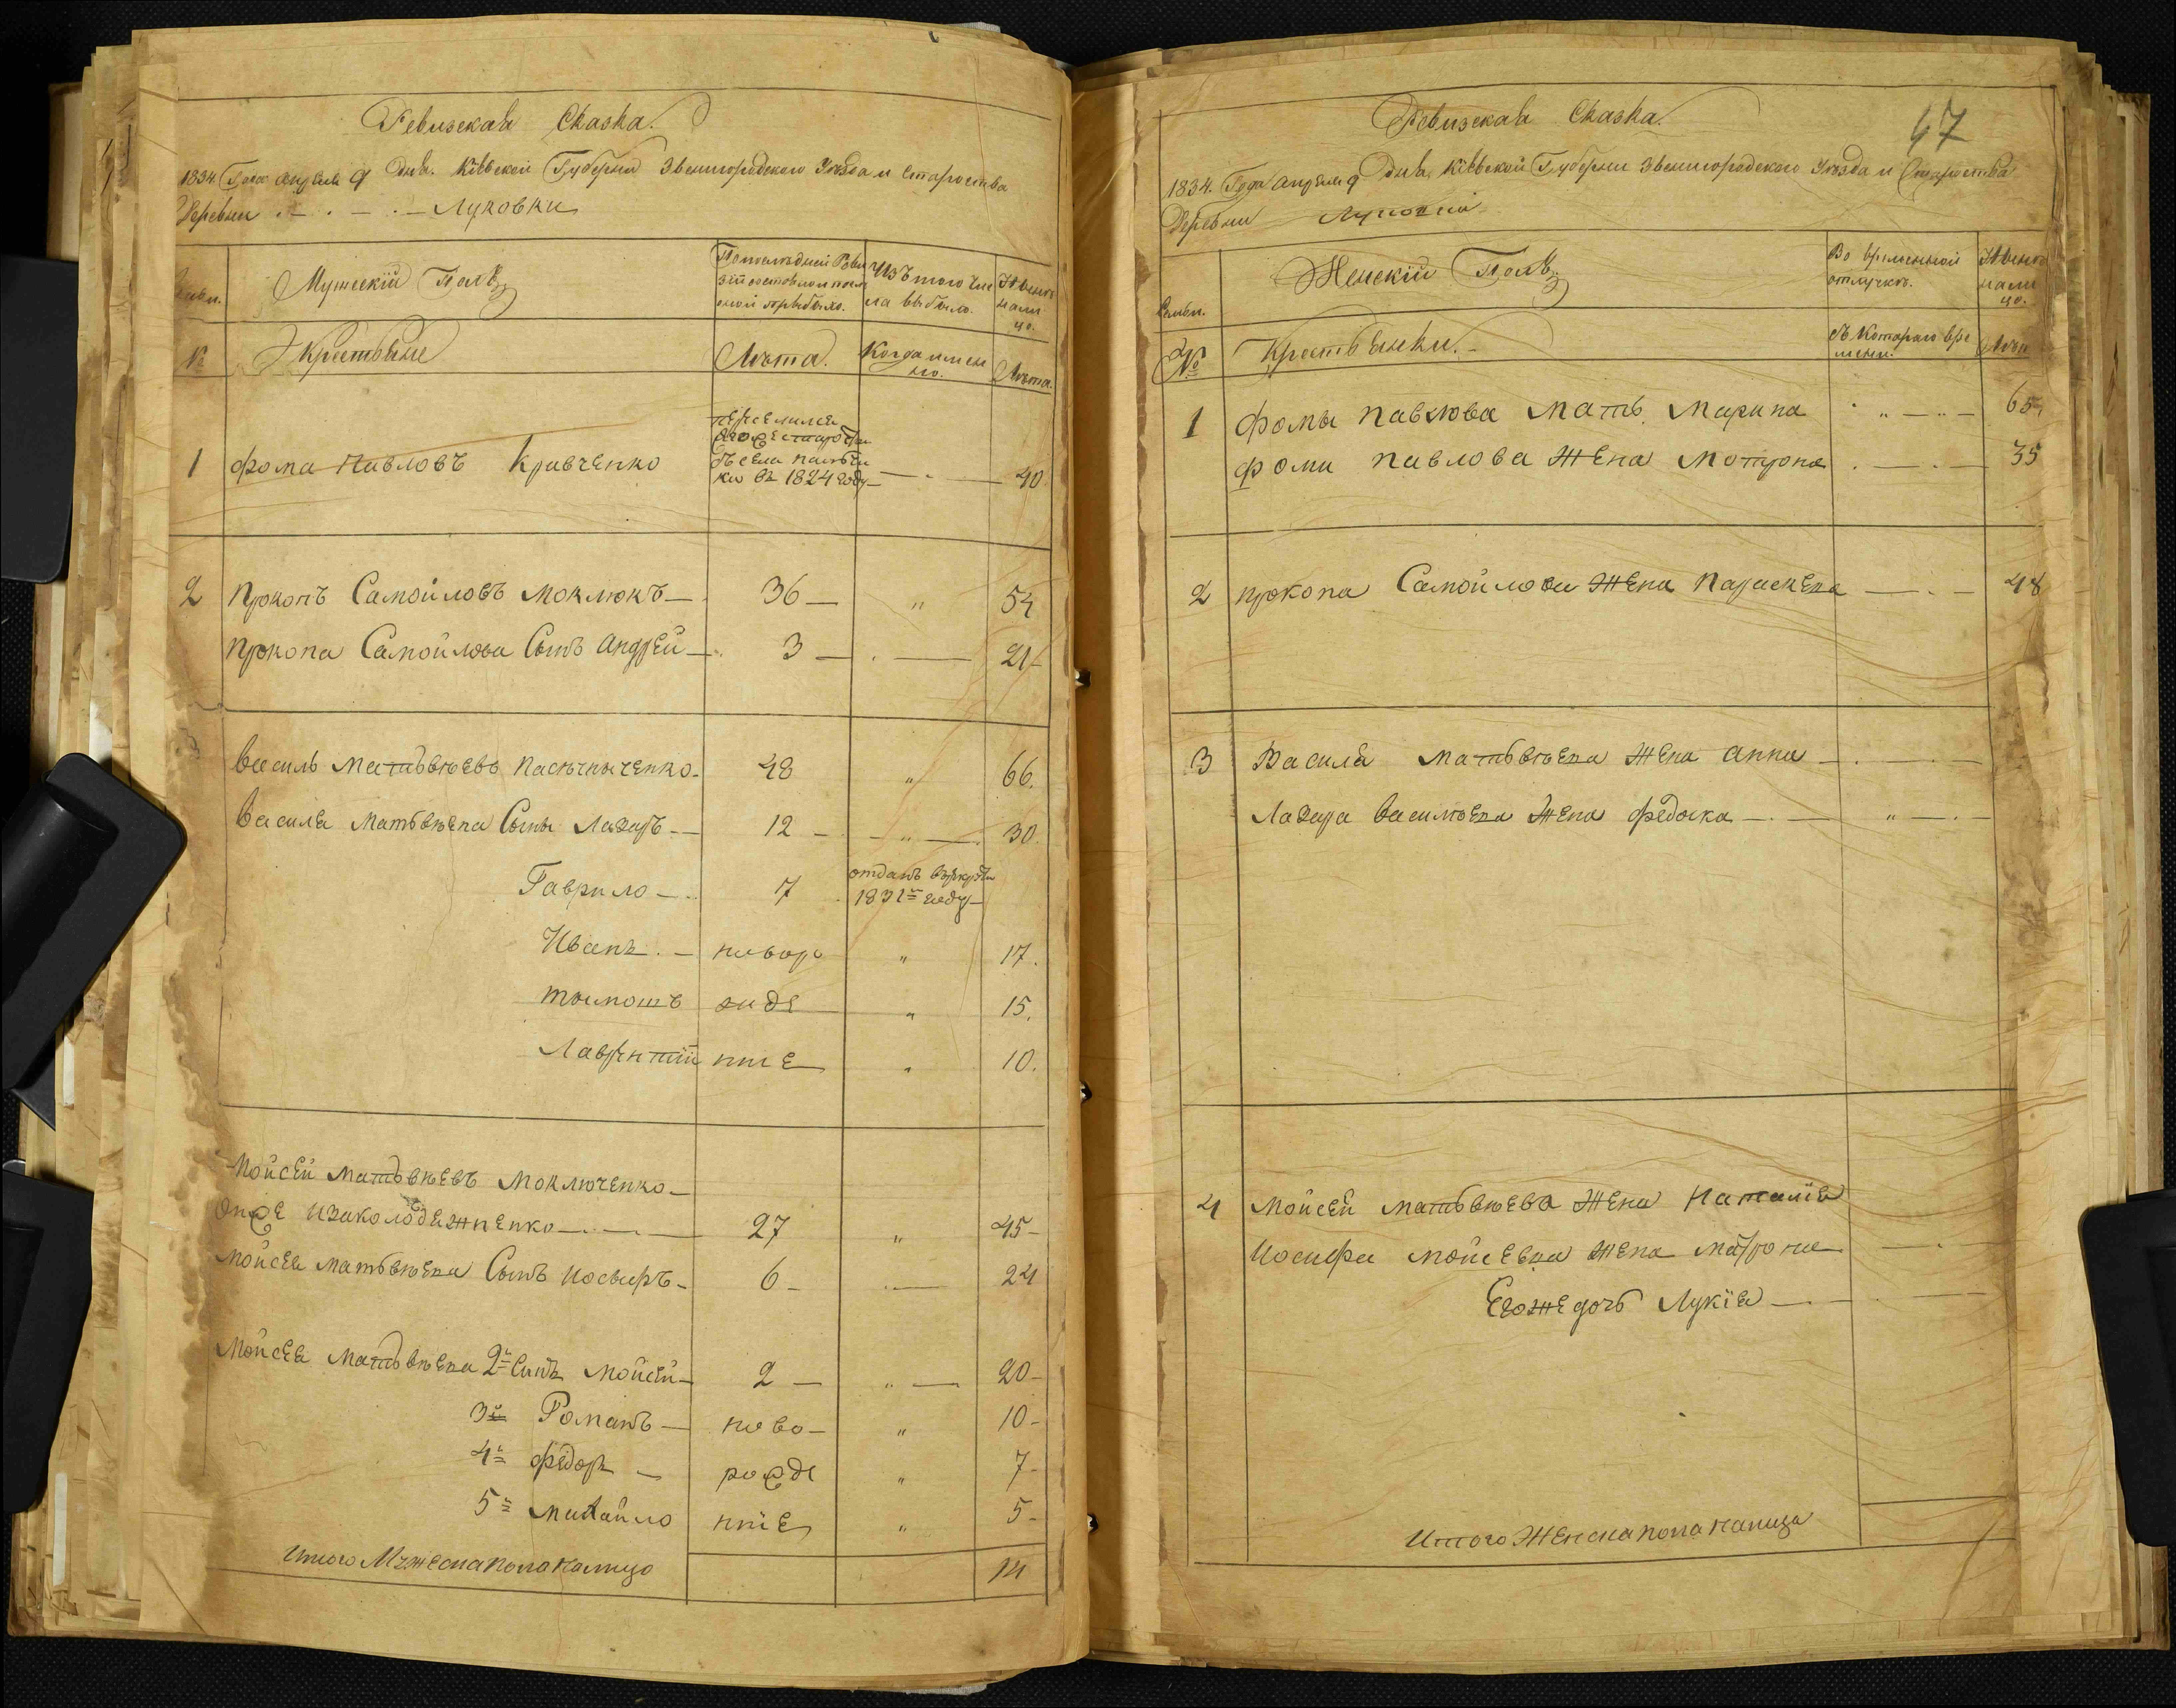 Ревизская Сказка.
1834 Года апреля 9 дня. Кіевской Губерніи Звенигородского Уезда и Староства
Деревни Луковки
Мужескій Полъ
По последней Ревизіи состояло и после оной прибыло.
Изъ того числа выбыло.
Ныне на лицо.
№
Крестьяне
Лѣта.
Когда именно.
Лѣта.
1 Фома Павловъ Кравченко
съ села
въ 1824 году
40
2 Прокопъ Самойловъ Моклюкъ 36 54
Прокопа Самойлова Сынъ Андрей 3 21
Василь Матвѣевъ Пасѣчныченко 48 66.
Василя Матвѣева Сыны Лазаръ 12 30.
Гаврило 7 отданъ в рекруты
1831 году
Иванъ новоро 17.
Тымошъ жде 15.
Лаврентій нніе 10.
Мойсей Матвѣевъ Моключенко
Онже Изаколодежненко 27 45
Мойсея Матвѣева Сынъ Иосыфъ 6 24
Мойсея Матвѣева 2й Сынъ Мойсей 2 20
3й Романъ ново 10
4й Федоръ рожде 7
5й Михайло нніе 5
Итого Мужеска пола налицо 14
47
Ревизская Сказка.
1834. Года апреля 9 дня Кіевской Губерніи Звенигородского Уезда и Староства
Деревни Луковки
Женскій Полъ
Во временной отлучкѣ.
Ныне на лицо.
Семьи.
№
Крестьянки.
съ Котораго времени.
Лѣта
1 Фомы Павлова Мать Марина 65
Фомы Павлова Жена Мотрона 35
2 Прокопа Самойлова Жена Параскева 48
3 Василя Матвѣева Жена Анна
Лазара Васильева Жена Федоска
4 Мойсея Матвѣева Жена Наталія
Иосифа Мойсеева Жена Матрона
Егоже дочь Лукія
Итого Женска пола налицо